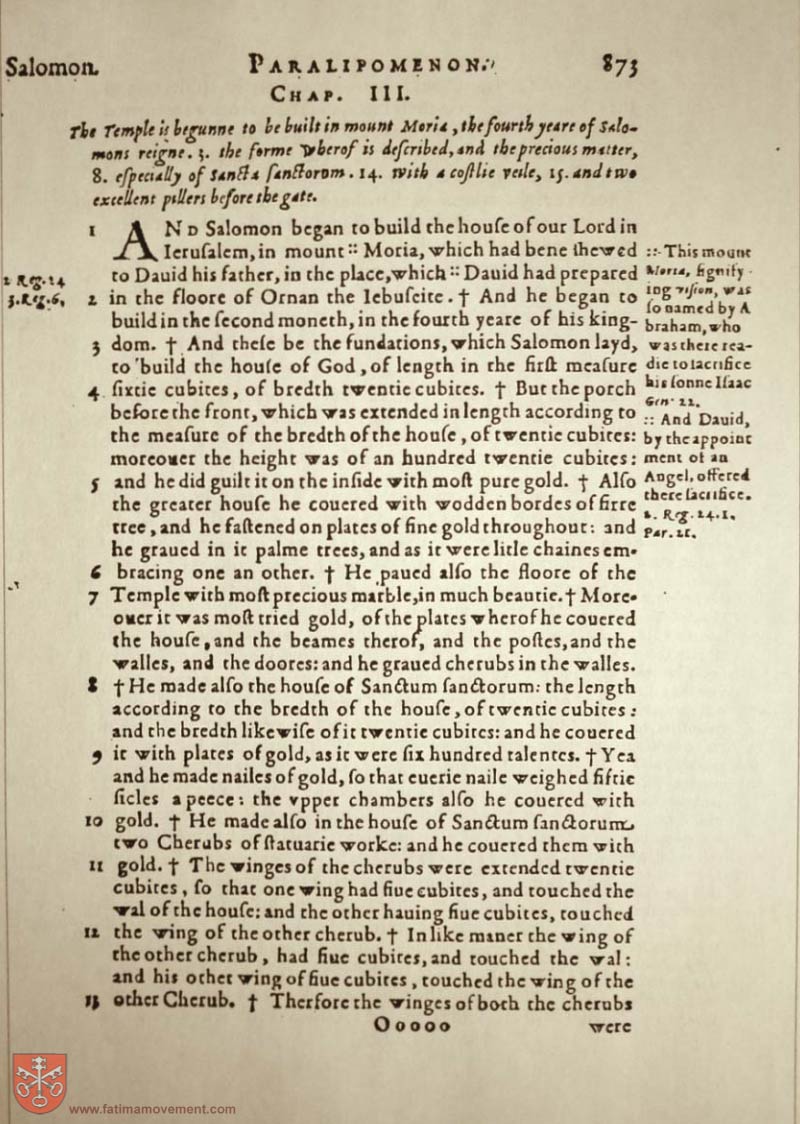 Salomon. PARALIPOMENON. 873
CHAP. III.
The Temple is begunne to be built in mount Moria, the fourth yeare of Salo-
mons reigne. 3. the forme wherof is deſcribed, and the precious matter,
8. eſpecially of Sancta ſanctorum. 14. with a coſtlie veile, 15. and two
excellent pillers before the gate.
1 AND Salomon began to build the houſe of our Lord in
Ieruſalem, in mount :: Moria, which had bene ſhewed
to Dauid his father, in the place, which :: Dauid had prepared
2 in the floore of Ornan the Iebuſeite. † And he began to
build in the ſecond moneth, in the fourth yeare of his king-
3 dom. † And theſe be the fundations, which Salomon layd,
to build the houſe of God, of length in the firſt meaſure
4 ſixtie cubites, of bredth twentie cubites. † But the porch
before the front, which was extended in length according to
the meaſure of the bredth of the houſe, of twentie cubites:
moreouer the height was of an hundred twentie cubites:
5 and he did guilt it on the inſide with moſt pure gold. † Alſo
the greater houſe he couered with wodden bordes of firre
tree, and he faſtened on plates of fine gold throughout: and
he graued in it palme trees, and as it were litle chaines em-
6 bracing one an other. † He paued alſo the floore of the
7 Temple with moſt precious marble, in much beautie. † More-
ouer it was moſt tried gold, of the plates wherof he couered
the houſe, and the beames therof, and the poſtes, and the
walles, and the doores: and he graued cherubs in the walles.
8 † He made alſo the houſe of Sanctum ſanctorum: the length
according to the bredth of the houſe, of twentie cubites:
and the bredth likewiſe of it twentie cubites: and he couered
9 it with plates of gold, as it were ſix hundred talentes. † Yea
and he made nailes of gold, ſo that euerie naile weighed fiftie
ſicles a peece: the vpper chambers alſo he couered with
10 gold. † He made alſo in the houſe of Sanctum ſanctorum
two Cherubs of ſtatuarie worke: and he couered them with
11 gold. † The winges of the cherubs were extended twentie
cubites, ſo that one wing had fiue cubites, and touched the
wal of the houſe: and the other hauing fiue cubites, touched
12 the wing of the other cherub. † In like maner the wing of
the other cherub, had fiue cubites, and touched the wal:
and his other wing of fiue cubites, touched the wing of the
13 other Cherub. † Therfore the winges of both the cherubs
Ooooo were
2 Reg. 24
3. Reg. 6,
:: This mount
Moria, ſignify-
ing viſion, was
ſo named by A
braham, who
was there rea-
die to ſacrifice
his ſonne Iſaac
Gen. 22.
:: And Dauid,
by the appoint
ment of an
Angel, offered
there ſacrifice.
2. Reg. 24. 1.
Par. 21.
www.fatimamovement.com